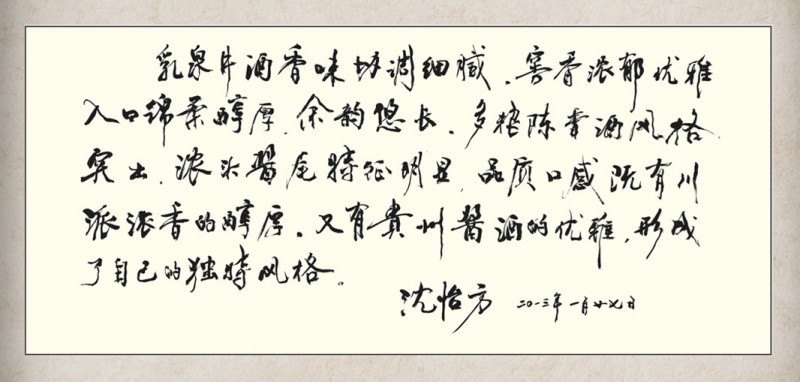 乳泉牛酒香味协调细腻，窖香浓郁优雅
入口绵柔醇厚，余韵悠长，多粮陈香酒风格
突出，浓头酱尾特征明显，品质口感既有川
派浓香的醇厚，又有贵州酱酒的优雅，形成
了自己的独特风格。
沈怡方 二〇一三年一月廿七日